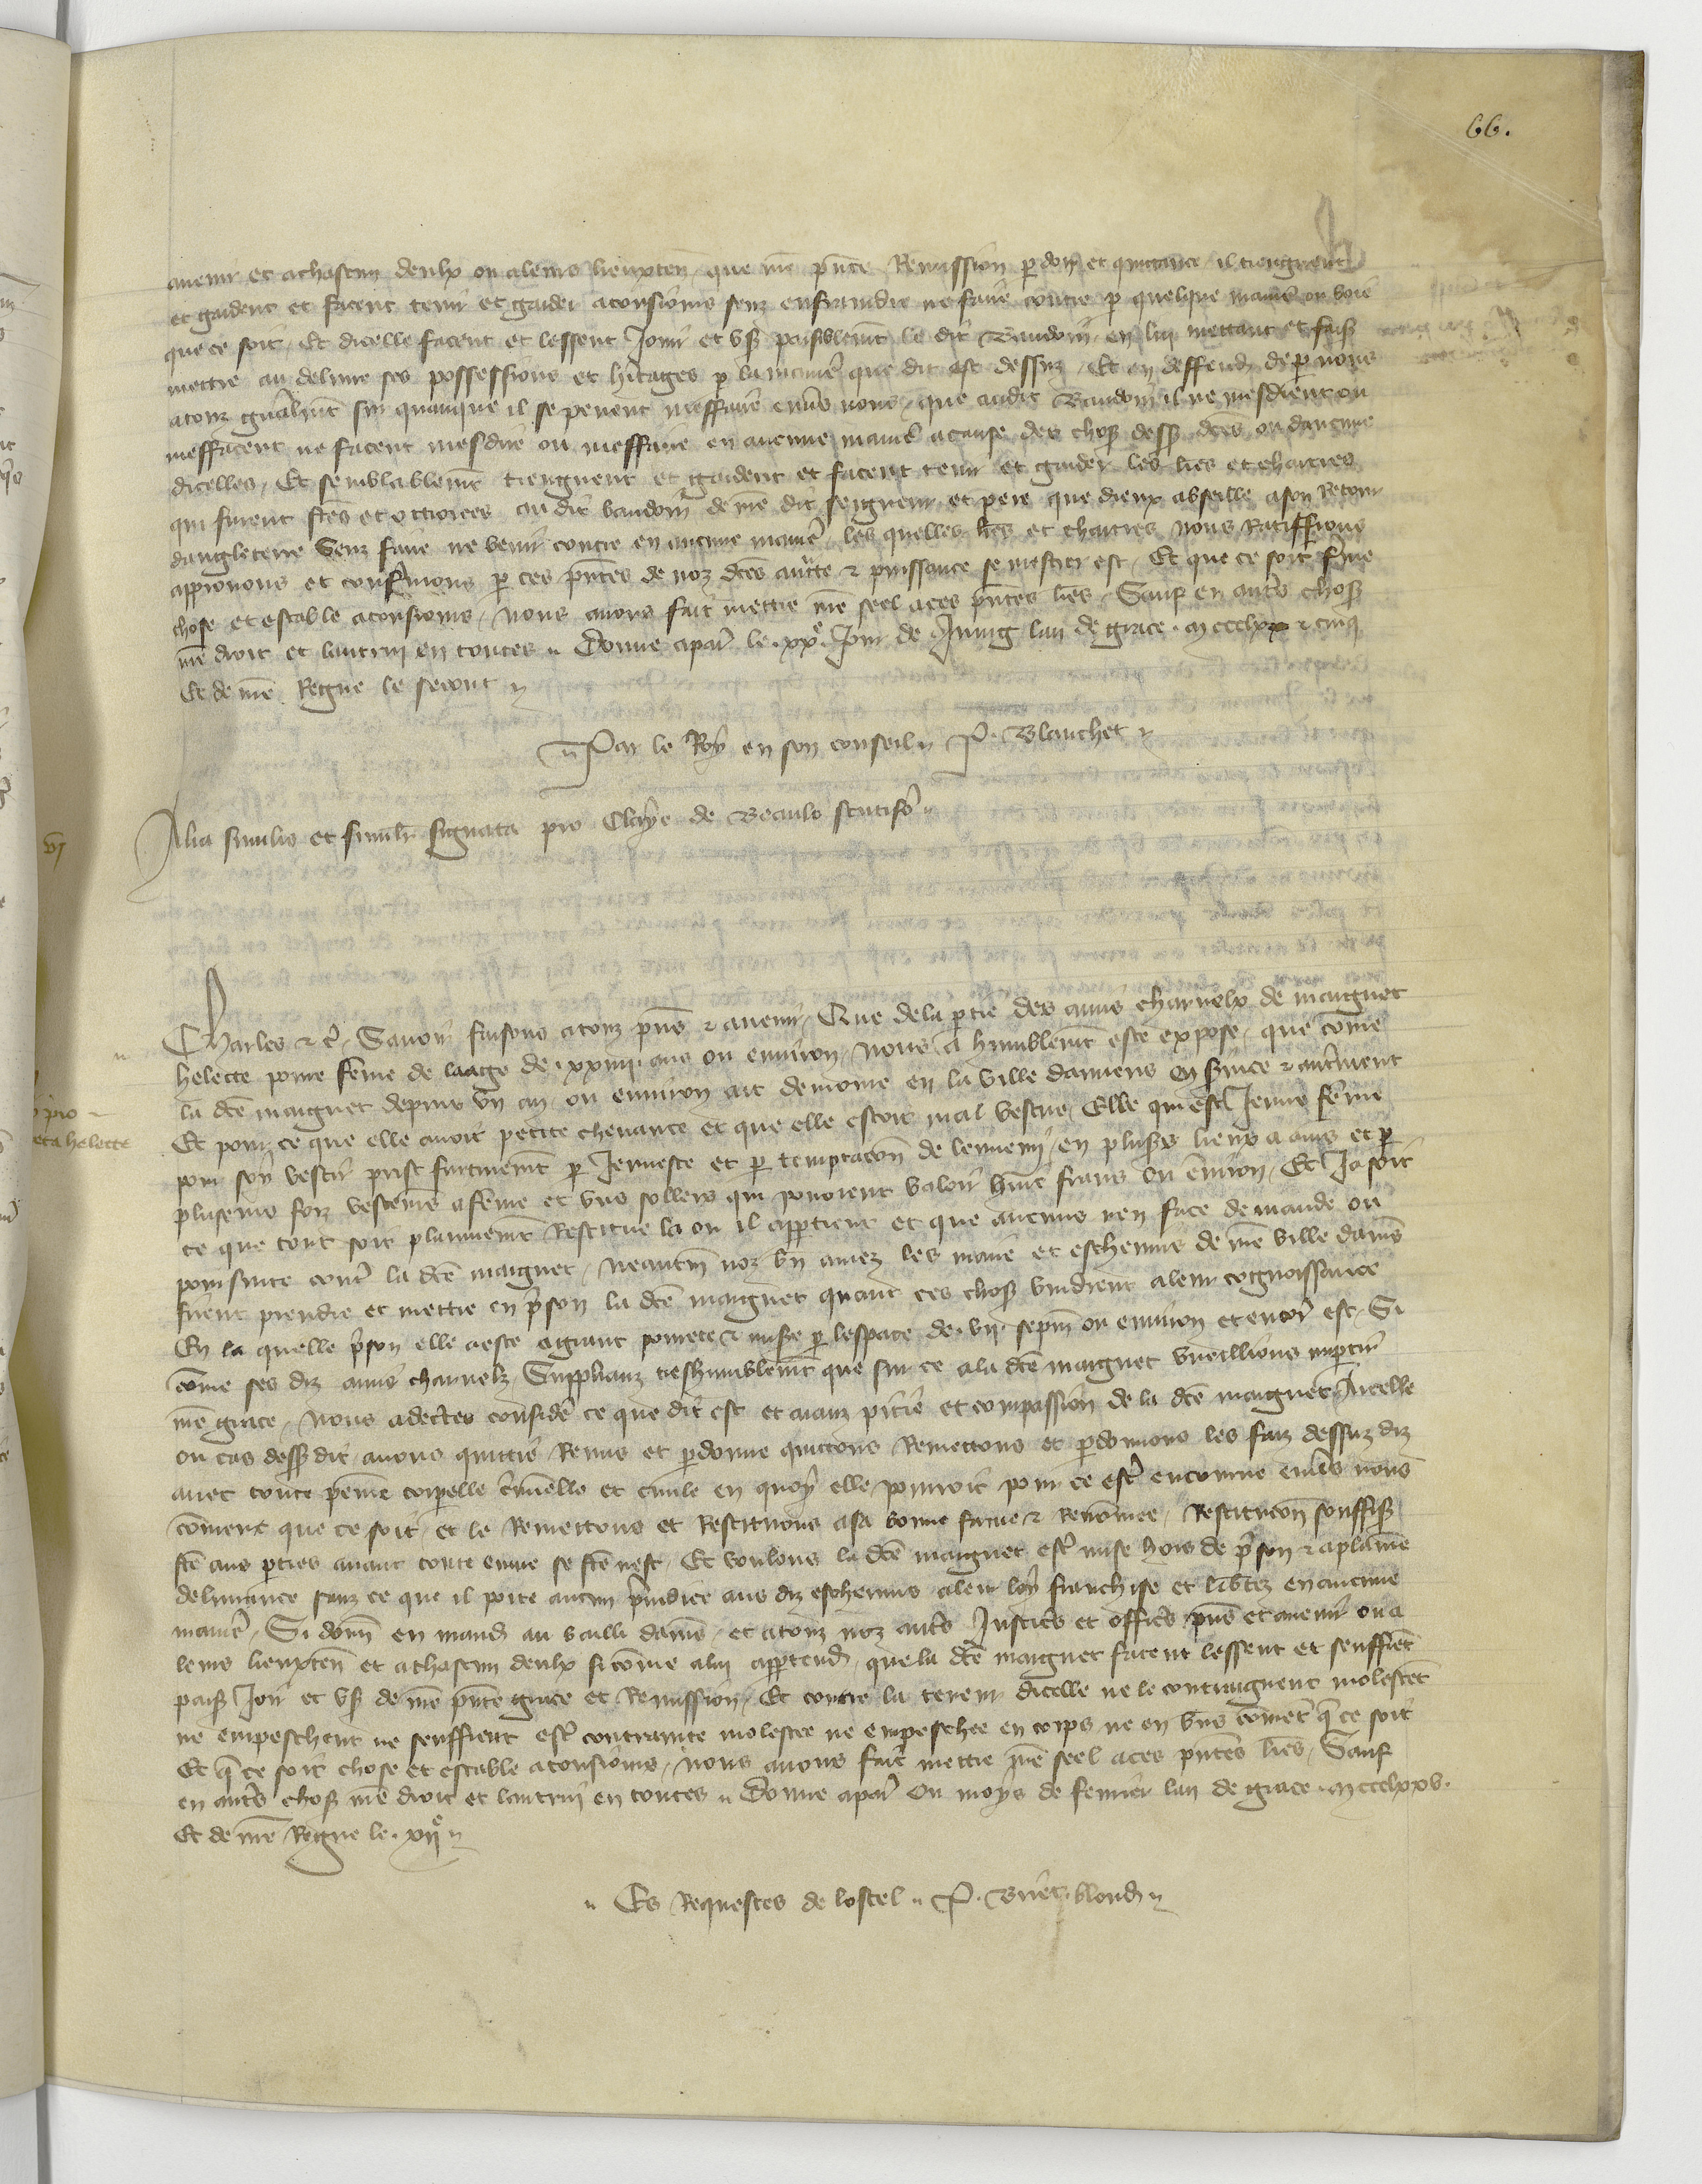 66.
avenir et achascun deulx ou aleurs lieuxten que nre pnte Remission pardon et quittance il tiengnent
et gardent et facent tenir et garder atousiours senz enfraindre ne faire contre p quelque maniere ou voie
que ce soit, Et dicelle facent et lessent Jouir et vser paisiblemt le dit Baudoin en lui mettant et faiss
mettre au deliure ses possessions et hitages p la maniere que dit est dessuz, Et en deffend de p nous
atouz gnalmt sur quanque il se peuent meffaire enus nous, que audit Baudoin il ne mesdient ou
meffacent ne facent mesdire ou meffaire en aucune maniere acause des choses dess dces ou daucune
dicelles, Et semblablemt tiengnent et gardent et facent tenir et garder les lres et chartres
qui furent fces et ottroiees au dit baudoin de nre dit seigneur et pere que dieux absoille ason Retour
dangleterre senz faire ne venir contre en aucune maniere, les quelles lres et chartres nous Ratiffions
approuuons et confermons p ces pntes de noz dces aucte & puissance se mestier est, Et que ce soit ferme
chose et estable atousiours, nous auons fait mettre nre seel aces pntes lres, Sauf en autres choses
nre droit et lautruy en toutes Donne a paris le xxe Jour de Juing lan de grace mccclxx & cinq
Et de nre Regne le second
Par le Roy en son conseil P. Blanchet
Alia similis et similr signata pro Claye de Beaulo scutifero
Charles &c. Sauoir faisons atouz pns & auenir, Que dela partie des amis charnelx de maignet
helecte poure feme de laage de xxiiii ans ou enuiron, nous a humblemt este expose, que come
la dce maignet depuis vn an ou enuiron ait demoure en la ville damiens en seruice & autrement
Et pour ce que elle auoit petite cheuance et que elle estoit mal vestue, Elle qui est Jeune feme
pour son vestir prist furtiuemt p Jeunesce et p temptacon de lennemi en plusrs lieux a amis et p
plusieurs foiz vestemens afeme et vns sollers qui pouoient valoir huit frans ou enuiron, Et Ja soit
ce que tout soit plainnemt Restitue la ou il appartient et que aucuns nen face demande ou
poursuite contre la dce maignet, neantm noz bn amez les maire et escheuins de nre ville damiens
firent prendre et mettre en prison la dce maignet quant ces choses vindrent aleur cognoissance
En la quelle prison elle aeste agrant pourete & misere p lespace de vii sepm ou enuiron et encores est, Si
come ses diz amis charnelz, Supplianz treshumblemt que sur ce ala dce maignet vueillions impartir
nre grace, nous adecertes considere ce que dit est et aianz pitie et compassion de la dce maignet, Aicelle
ou cas dess dit auons quittie Remis et pardonne quittons Remettons et pardonnons les faiz dessuz diz
auec toute peine corporelle criminelle et ciuile en quoy elle pourroit pour ce estre encourue enuers nous
coment que ce soit, et le Remettons et Restituons asa bonne fame & Renomee, Restitucon souffiss
fce aus parties auant toute euure se fce nest, Et voulons la dce maignet estre mise hors de prison & aplaine
deliurance sanz ce que il porte aucun preiudice aus diz escheuins aleur loy franchise et libtez en aucune
maniere, Si donn en mand au bailli damiens, et atouz noz autres Justiciers et officiers pns et auenir ou a
leurs lieuxten et achascun deulx si come alui appartend, que la dce maignet facent lessent et seuffrent
paiss Jouir et vser de nre pnte grace et Remission, Et contre la teneur dicelle ne le contraignent molestent
ne empeschent ne seuffrent estre contrainte molestee ne empeschee en corps ne en biens coment que ce soit
Et que ce soit chose et estable atousiours, nous auons fait mettre nre seel aces pntes lres, Sauf
en autres choses nre droit et lautruy en toutes Donne aparis ou moys de feurier lan de grace mccclxxv.
Et de nre Regne le xiie
Es Requestes de lostel P.